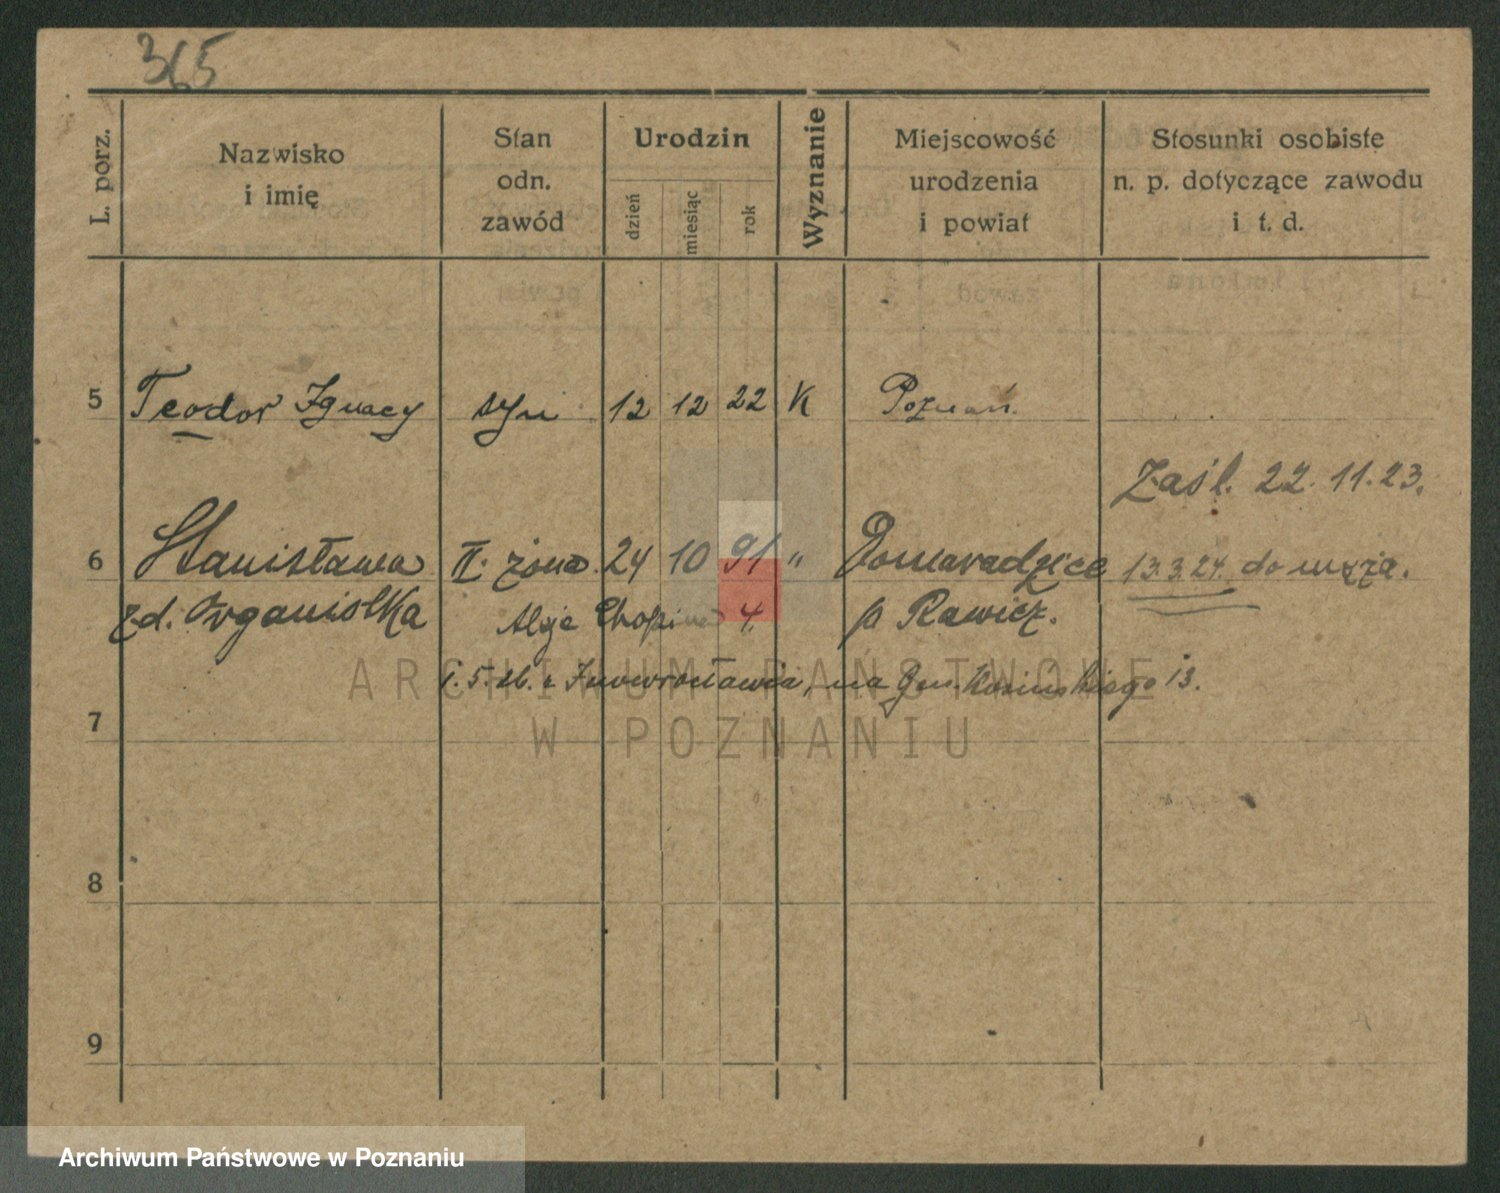 365
L. porz.
Nazwisko
i imię
Stan
odn.
zawód
Urodzin
dzień
miesiąc
rok
Wyznanie
Miejscowość
urodzenia
i powiat
Stosunki osobiste
n. p. dotyczące zawodu
i t. d.
5 Teodor Ignacy syn 12 12 22 K Poznań.
Zaśl. 22. 11. 23.
6 Stanisława II. żona 24 10 91 " Domaradzice 13.3.24. do męża.
zd. Organistka Aleje Chopina 4. p Rawicz.
5. 26. z Inowrocławia, na Gen. Kosińskiego 13.
ARCHIWUM PAŃSTWOWE
W POZNANIU
7
8
9
Archiwum Państwowe w Poznaniu